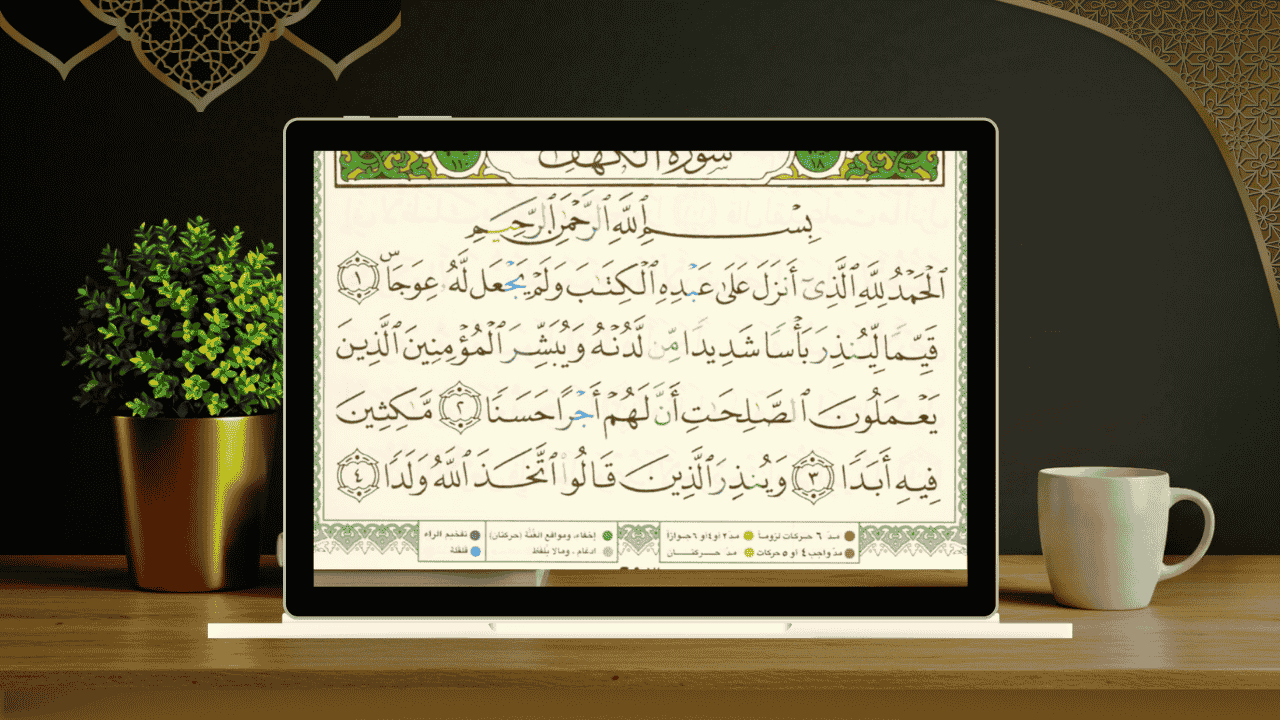 سورة الكهف
١٨
١١٠
بِسْمِ ٱللَّهِ ٱلرَّحْمَٰنِ ٱلرَّحِيمِ
ٱلْحَمْدُ لِلَّهِ ٱلَّذِىٓ أَنزَلَ عَلَىٰ عَبْدِهِ ٱلْكِتَٰبَ وَلَمْ يَجْعَل لَّهُۥ عِوَجَاۜ ١
قَيِّمًا لِّيُنذِرَ بَأْسًا شَدِيدًا مِّن لَّدُنْهُ وَيُبَشِّرَ ٱلْمُؤْمِنِينَ ٱلَّذِينَ
يَعْمَلُونَ ٱلصَّٰلِحَٰتِ أَنَّ لَهُمْ أَجْرًا حَسَنًا ٢ مَّٰكِثِينَ
فِيهِ أَبَدًا ٣ وَيُنذِرَ ٱلَّذِينَ قَالُوا۟ ٱتَّخَذَ ٱللَّهُ وَلَدًا ٤
مدّ ٦ حركات لزوماً مدّ ٢ او ٤ او ٦ جوازاً
مدّ واجب ٤ او ٥ حركات مدّ حركتان
إخفاء، ومواقع الغُنَّة (حركتان)
ادغام، ومالا يلفظ
تفخيم الراء
قلقلة